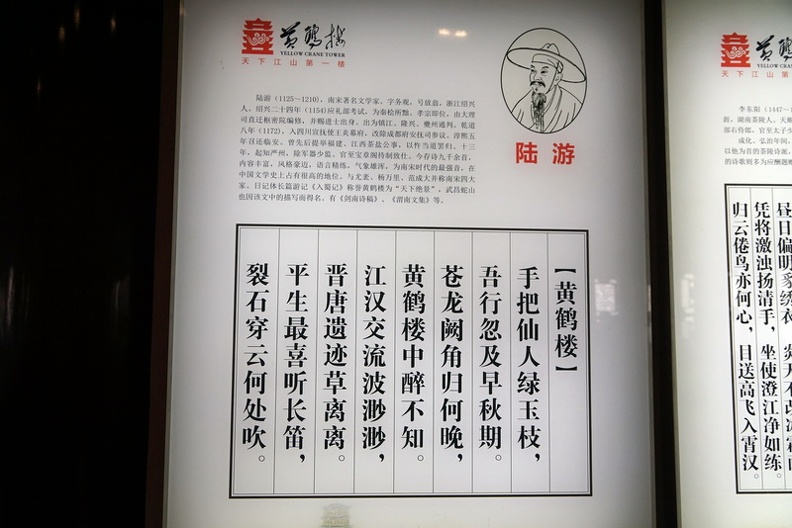 黄鹤楼
YELLOW CRANE TOWER
天下江山第一楼
陆游
陆游（1125~1210），南宋著名文学家，字务观，号放翁，浙江绍兴
人。绍兴二十四年（1154）应礼部考试，为秦桧所黜。孝宗即位，由大理
司直迁枢密院编修，并赐进士出身。出为镇江、隆兴、夔州通判。乾道
八年（1172），入四川宣抚使王炎幕府，改除成都府安抚司参议。淳熙五
年召还临安，曾先后提举福建、江西茶盐公事，以忤当道罢归。十三
年，起知严州，除军器少监。官至宝章阁待制致仕。今存诗九千余首，
内容丰富，风格豪迈，语言精炼，气象雄浑，为南宋时代的最强音，在
中国文学史上占有很高的地位。与尤袤、杨万里、范成大并称南宋四大
家。日记体长篇游记《入蜀记》称誉黄鹤楼为“天下绝景”，武昌蛇山
也因该文中的描写而得名。有《剑南诗稿》、《渭南文集》等。
【黄鹤楼】
手把仙人绿玉枝，
吾行忽及早秋期。
苍龙阙角归何晚，
黄鹤楼中醉不知。
江汉交流波渺渺，
晋唐遗迹草离离。
平生最喜听长笛，
裂石穿云何处吹。
黄鹤
YELLOW CRANE
天下江山第
李东阳（1447~1
坐使澄江净如练。
凭将激浊扬清手，
目送高飞入霄汉。
归云倦鸟亦何心，